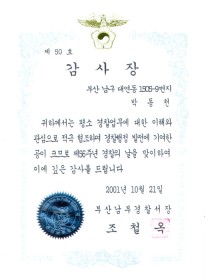 제 50 호
감 사 장
부산 남구 대연동 1505-9번지
박 동 천
귀하께서는 평소 경찰업무에 대한 이해와
관심으로 적극 협조하여 경찰행정 발전에 기여한
공이 크므로 제56주년 경찰의 날을 맞이하여
이에 깊은 감사를 드립니다
2001년 10월 21일
부산남부경찰서장
조 철 옥